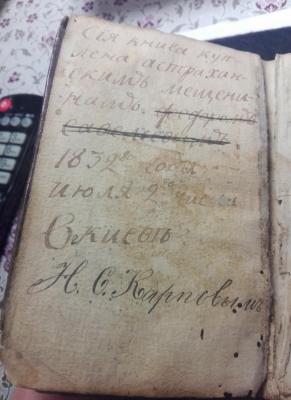 Сія книга куп
лена астрахан-
скимъ мещени-
номъ
1832го года
июля 2го числа
Н. С. Карповымъ